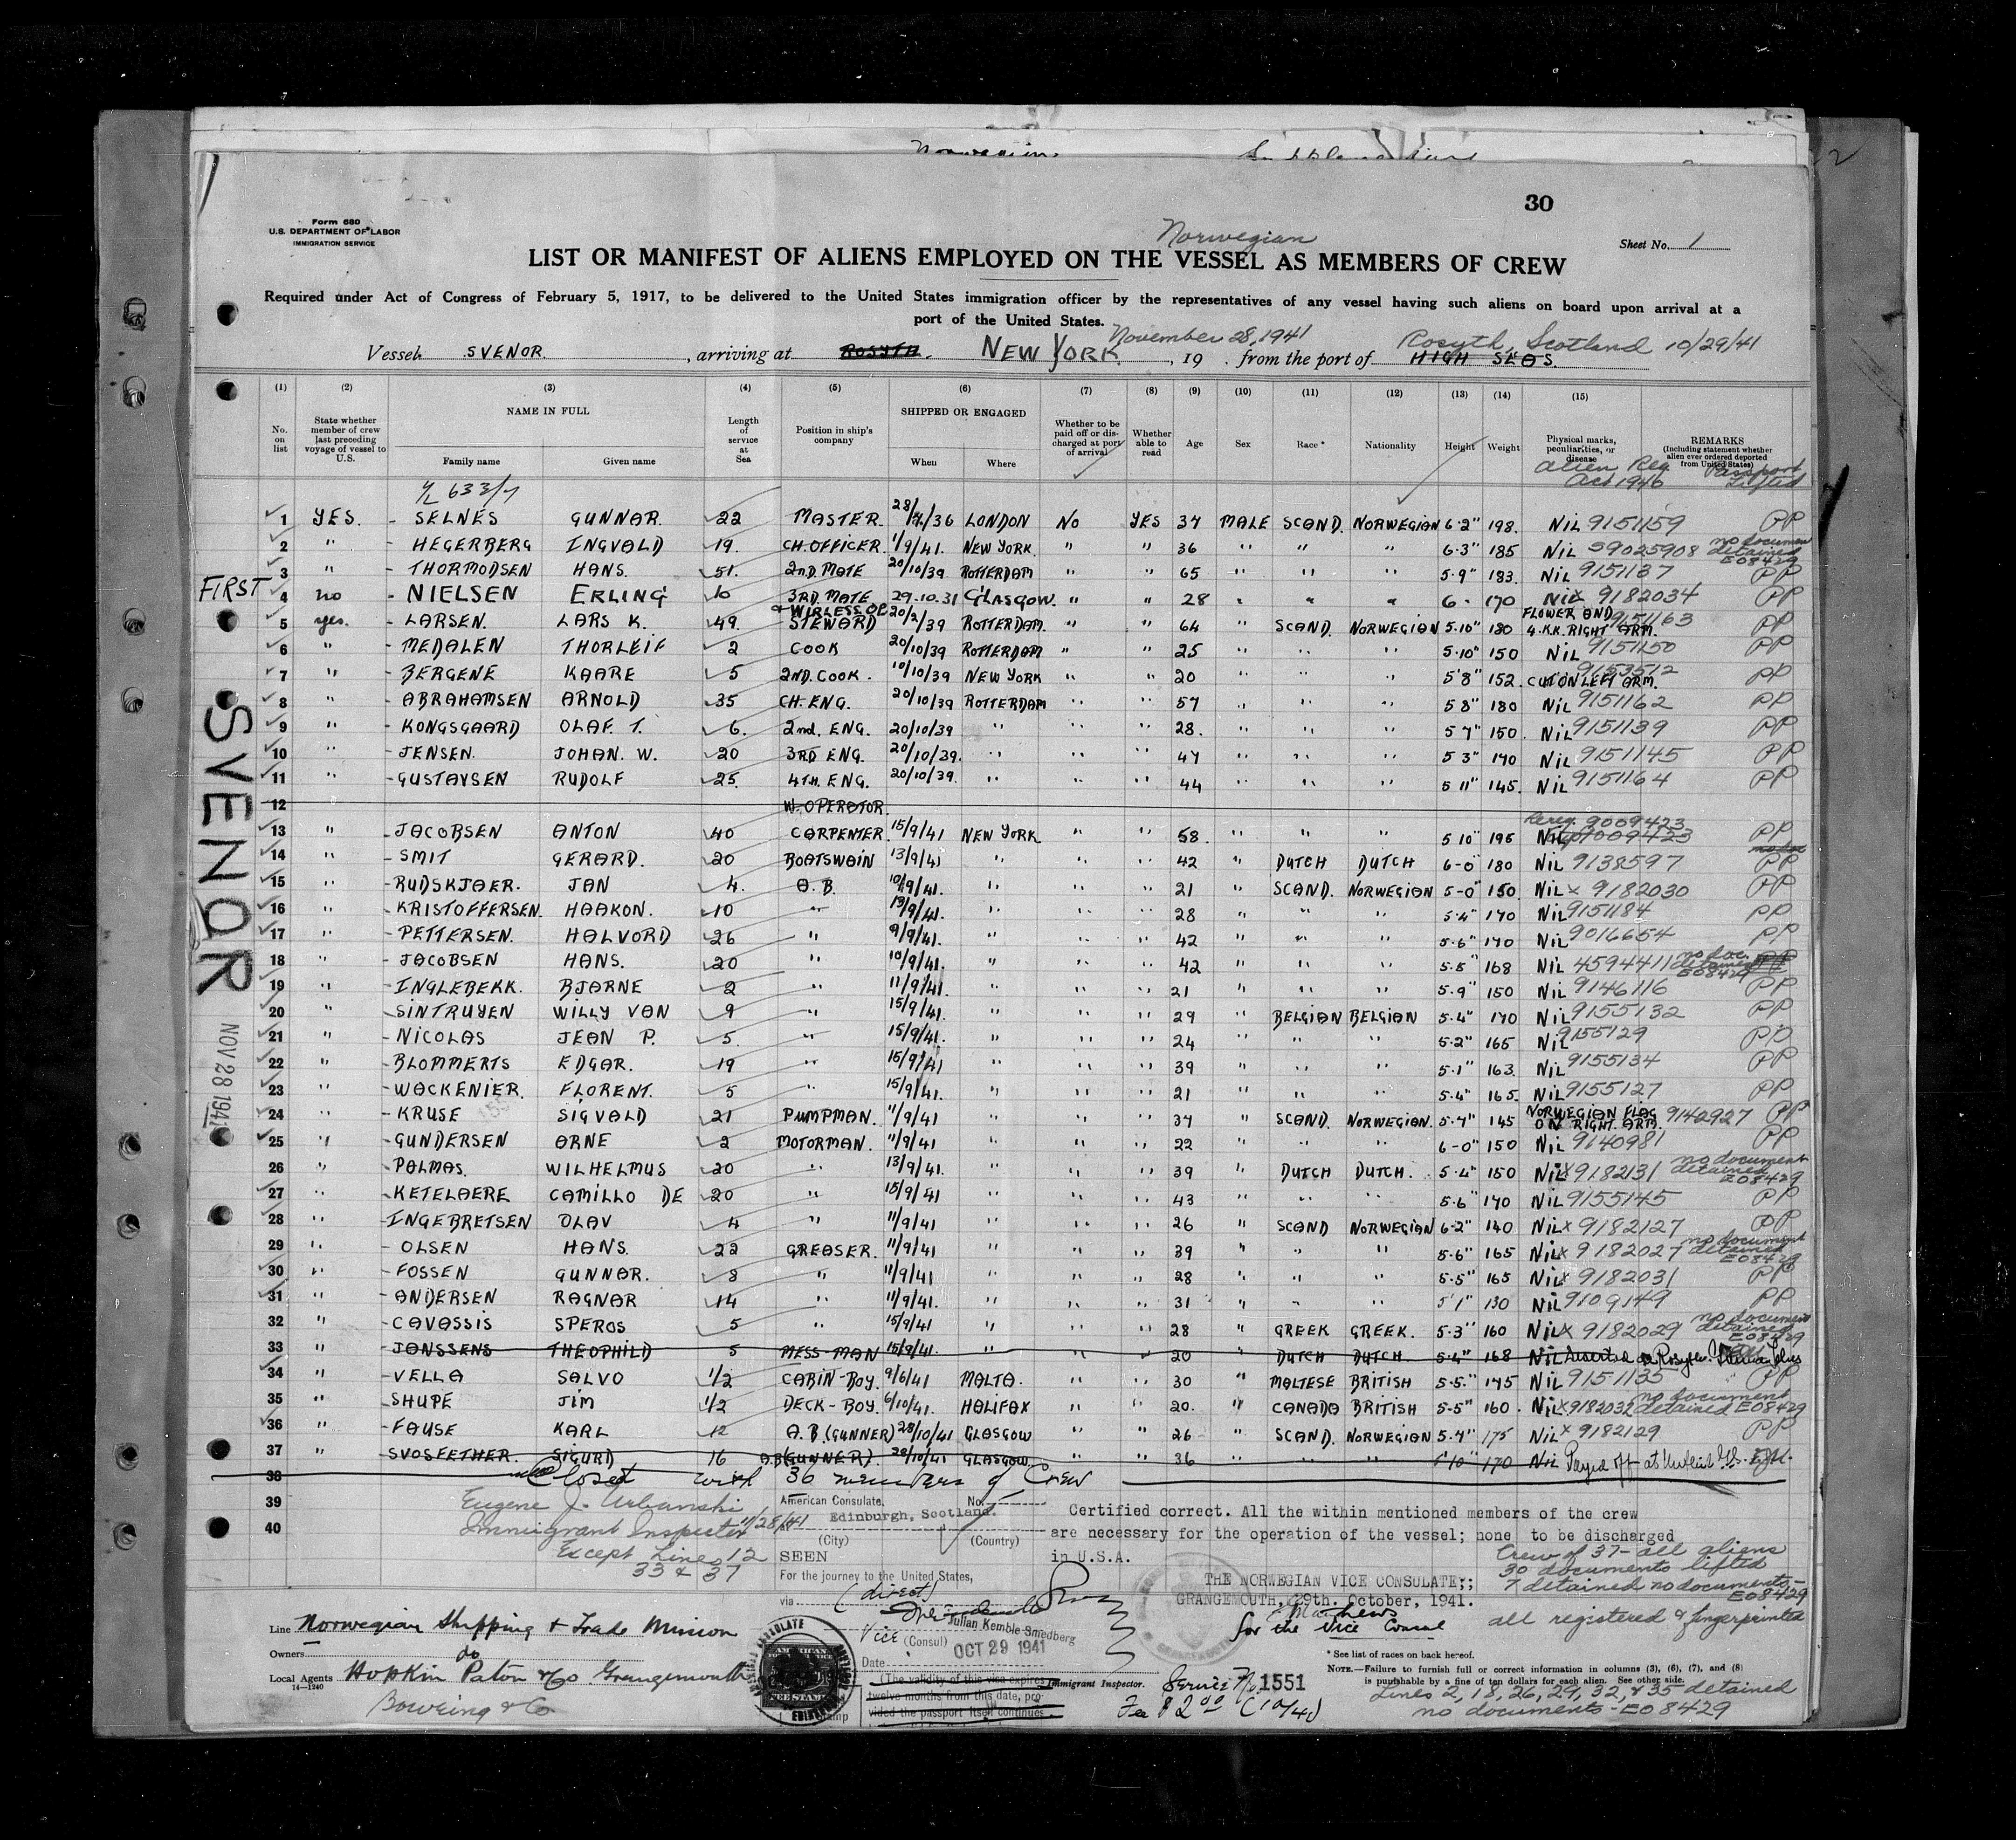 30
Form 680
U.S. DEPARTMENT OF LABOR
IMMIGRATION SERVICE
Norwegian
Sheet No. 1
LIST OR MANIFEST OF ALIENS EMPLOYED ON THE VESSEL AS MEMBERS OF CREW
Required under Act of Congress of February 5, 1917, to be delivered to the United States immigration officer by the representatives of any vessel having such aliens on board upon arrival at a
port of the United States.
November 28, 1941
Vessel SVENOR, arriving at ROSYTH. NEW YORK, 19 . from the port of HIGH SEAS. Rosyth, Scotland 10/29/41
(1) (2) (3) (4) (5) (6) (7) (8) (9) (10) (11) (12) (13) (14) (15)
No. on list
State whether member of crew last preceding voyage of vessel to U.S.
NAME IN FULL
Family name Given name
Length of service at Sea
Position in ship's company
SHIPPED OR ENGAGED
When Where
Whether to be paid off or discharged at port of arrival
Whether able to read
Age Sex Race * Nationality Height Weight
Physical marks, peculiarities, or disease
Alien Reg. Act 1940
REMARKS
(Including statement whether alien ever ordered deported from United States)
Passport Lifted
1 YES. - SELNES GUNNAR. 22 MASTER. 28/7/36 LONDON NO YES 37 MALE SCAND. NORWEGIAN 6·2" 198. NIL 9151159 PP
2 " - HEGERBERG INGVALD 19. CH.OFFICER. 1/9/41. NEW YORK. " " 36 " " " 6·3" 185 NIL 59025908 no document detained E08429
3 " - THORMODSEN HANS. 51. 2nD. MATE 20/10/39 ROTTERDAM " " 65 " " " 5·9" 183. NIL 9151137 PP
FIRST 4 no - NIELSEN ERLING 10 3RD. MATE & WIRLESS OP. 29.10.31 GLASGOW. " " 28 " " " 6 - 170 NIL x 9182034 PP
5 yes. - LARSEN. LARS K. 49. STEWARD 20/2/39 ROTTERDAM. " " 64 SCAND. NORWEGIAN 5·10" 180 FLOWER AND 4.K.K. RIGHT ARM. 9151163 PP
6 " - MEDALEN THORLEIF 2 COOK 20/10/39 ROTTERDAM " " 25 " " " 5·10" 150 NIL 9151150 PP
7 " - BERGENE KAARE 5 2ND. COOK. 10/10/39 NEW YORK " " 20 " " " 5'8" 152. CUT ON LEFT ARM. 9153512 PP
8 " - ABRAHAMSEN ARNOLD 35 CH. ENG. 20/10/39 ROTTERDAM " " 57 " " " 5 8" 180 NIL 9151162 PP
9 " - KONGSGAARD OLAF. T. 6. 2nd. ENG. 20/10/39 " " " 28. " " " 5 7" 150. NIL 9151139 PP
10 " - JENSEN. JOHAN. W. 20 3RD ENG. 20/10/39. " " " 47 " " " 5 3" 170 NIL 9151145 PP
11 " - GUSTAVSEN RUDOLF 25. 4TH. ENG. 20/10/39. " " " 44 " " " 5 11" 145. NIL 9151164 PP
12 W. OPERATOR.
13 " - JACOBSEN ANTON 40 CARPENTER. 15/9/41 NEW YORK " " 58. " " " 5 10" 195 NIL Rereg. 9009423 PP
14 " - SMIT GERARD. 20 BOATSWAIN 13/9/41 " " " 42 " DUTCH DUTCH 6-0" 180 NIL 9138597 PP
15 " - RUDSKJAER. JAN 4. A.B. 10/9/41. " " " 21 " SCAND. NORWEGIAN 5-0" 150 NIL x 9182030 PP
16 " - KRISTOFFERSEN. HAAKON. 10 " 13/9/41. " " " 28 " " " 5·4" 170 NIL 9151184 PP
17 " - PETTERSEN. HALVORD 26 " 9/9/41. " " " 42 " " " 5·6" 170 NIL 9016654 PP
18 " - JACOBSEN HANS. 20 " 10/9/41. " " " 42 " " " 5·5" 168 NIL 4594411 no doc. detained E08429
19 " - INGLEBEKK. BJARNE 2 " 11/9/41. " " " 21 " " " 5·9" 150 NIL 9146116 PP
20 " - SINTRUYEN WILLY VAN 9 " 15/9/41. " " " 29 " BELGIAN BELGIAN 5·4" 170 NIL 9155132 PP
21 " - NICOLAS JEAN P. 5. " 15/9/41. " " " 24 " " " 5·2" 165 NIL 9155129 PP
22 " - BLOMMERTS EDGAR. 19 " 15/9/41 " " " 39 " " " 5·1" 163. NIL 9155134 PP
23 " - WACKENIER. FLORENT. 5 " 15/9/41. " " " 21 " " " 5·4" 165. NIL 9155127 PP
24 " - KRUSE SIGVALD 21 PUMPMAN. 11/9/41 " " " 37 " SCAND. NORWEGIAN. 5·7" 145 NORWEGIAN FLAG ON RIGHT ARM. 9142927 PP
25 " - GUNDERSEN ARNE 2 MOTORMAN. 11/9/41 " " " 22 " " " 6-0" 150 NIL 9140981 PP
26 " - PALMAS. WILHELMUS 20 " 13/9/41. " " " 39 " DUTCH DUTCH. 5·4" 150 NIL x 9182131 no document detained E08429
27 " - KETELAERE CAMILLO DE 20 " 15/9/41 " " " 43 " " " 5·6" 170 NIL 9155145 PP
28 " - INGEBRETSEN OLAV 4 " 11/9/41 " " " 26 " SCAND NORWEGIAN 6·2" 140 NIL x 9182127 PP
29 " - OLSEN HANS. 22 GREASER. 11/9/41 " " " 39 " " " 5·6" 165 NIL x 9182027 no document detained E08429
30 " - FOSSEN GUNNAR. 8 " 11/9/41 " " " 28 " " " 5·5" 165 NIL x 9182031 PP
31 " - ANDERSEN RAGNAR 14 " 11/9/41. " " " 31 " " " 5'1" 130 NIL 9109149 PP
32 " - CAVASSIS SPEROS 5 " 15/9/41 " " " 28 " GREEK GREEK. 5·3" 160 NIL x 9182029 no document detained E08429
33 " - JANSSENS THEOPHILD 5 MESS-MAN 15/9/41. " " " 20 DUTCH DUTCH 5·4" 168 NIL Deserted Rosyth.
34 " - VELLA SALVO 1/2 CABIN-BOY. 9/6/41 MALTA. " " 30 " MALTESE BRITISH 5·5." 145 NIL 9151135 PP
35 " - SHUPE JIM 1/2 DECK-BOY. 6/10/41. HALIFAX " " 20. " CANADA BRITISH 5·5" 160. NIL. x 9182032 no document detained E08429
36 " - FAUSE KARL 12 A.B. (GUNNER) 28/10/41 GLASGOW " " 26 " SCAND. NORWEGIAN. 5·4" 175 NIL x 9182129 PP
37 " SVOSFETHER. SIGURD 16 A.B (GUNNER). 28/10/41 GLASGOW. " " 36 " " " 5'10" 170 NIL Payed off at
38 Closed with 36 members of Crew
39
40
SVENOR
NOV 28 1941
Eugene J. Urbanski
Immigrant Inspector 11/28/41
Except Lines 12
33 & 37
American Consulate, No.
Edinburgh, Scotland.
(City) (Country)
SEEN
For the journey to the United States,
via (direct)
Julian Kemble Smedberg
Vice (Consul)
Date OCT 29 1941
(The validity of this visa expires
twelve months from this date, pro-
vided the passport itself continues
Certified correct. All the within mentioned members of the crew
are necessary for the operation of the vessel; none to be discharged
in U.S.A.
THE NORWEGIAN VICE CONSULATE;;
GRANGEMOUTH, 29th. October, 1941.
E Mathews
for the Vice Consul
Crew of 37 - all aliens
30 documents lifted
7 detained no documents -
E08429
all registered & fingerprinted
Line Norwegian Shipping & Trade Mission
Owners do
Local Agents Hopkin Paton & Co. Grangemouth
14—1240
Bowring & Co
Immigrant Inspector.
Service No 1551
Fee $2.00
* See list of races on back hereof.
NOTE.—Failure to furnish full or correct information in columns (3), (6), (7), and (8)
is punishable by a fine of ten dollars for each alien. See other side.
Lines 2, 18, 26, 29, 32, & 35 detained
no documents - E08429